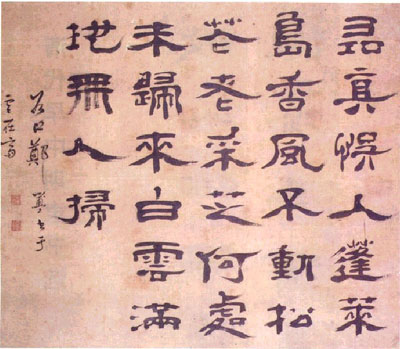 尋真悮入蓬萊
島香風不動松
花老采芝何處
未歸來白雲滿
地無人掃
谷口鄭簠書于